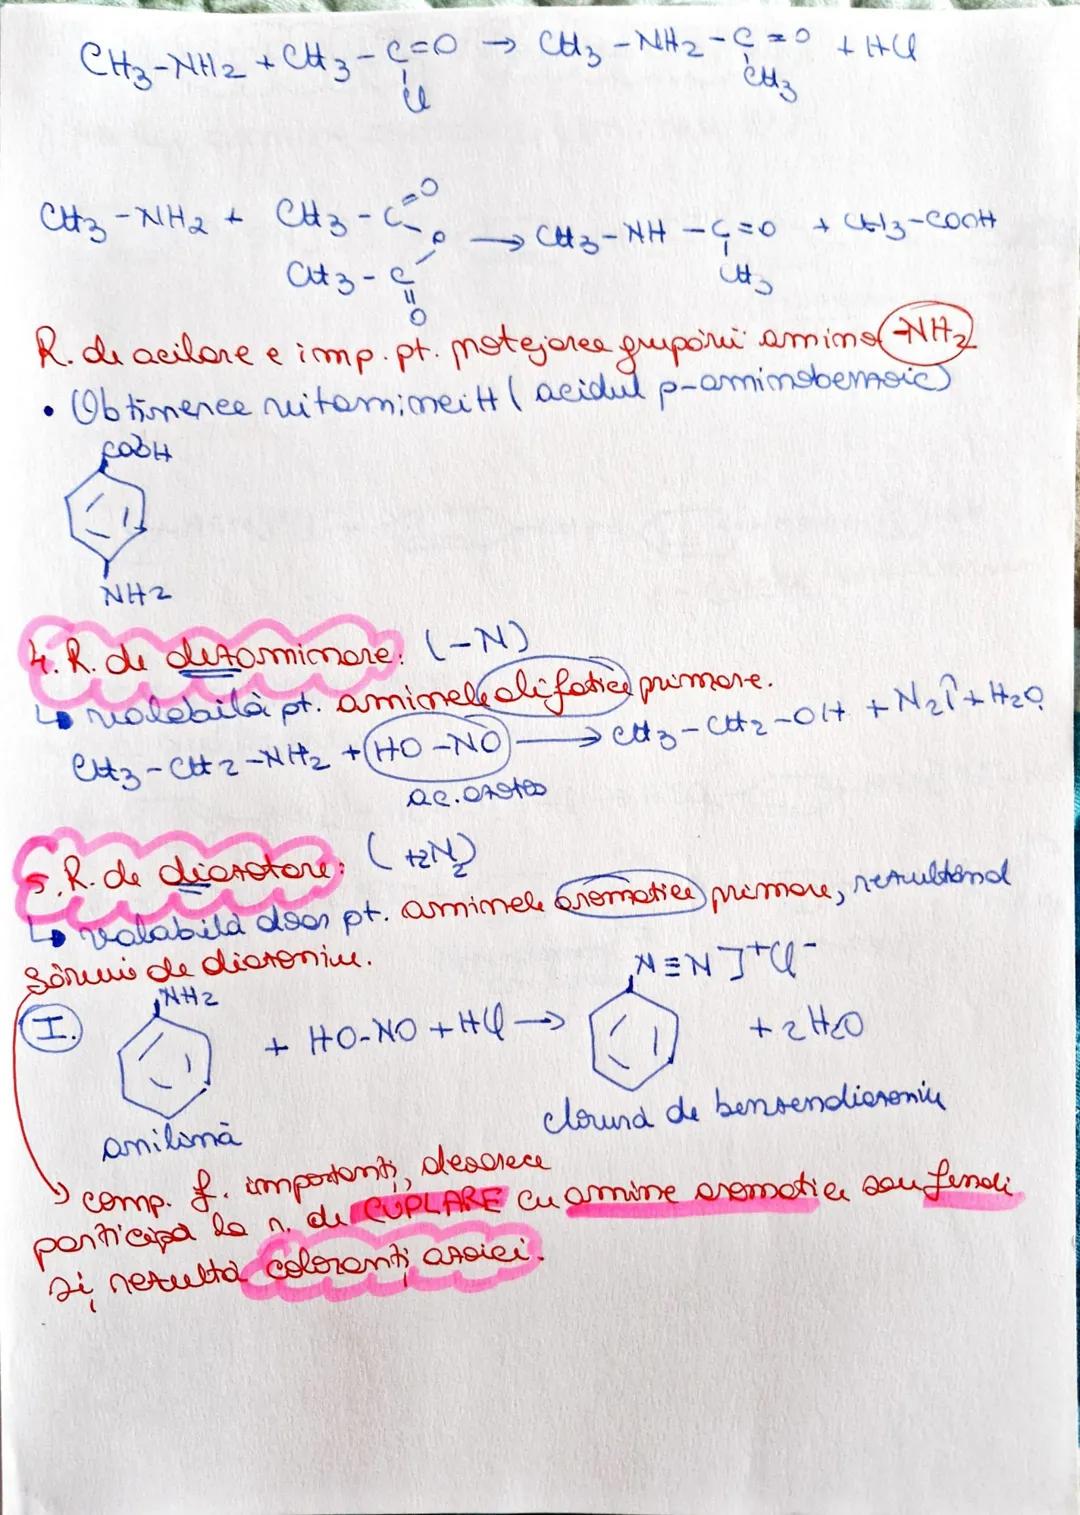 CH3-NH2 + CH3-C=O → CH3-NH2-C=O + HCl
Cl CH3
CH3-NH2 + CH3-C=O O → CH3-NH-C=O + CH3-COOH
CH3-C=O CH3
R. de acilare e imp. pt. protejarea grupării amino -NH2
• Obtinerea vitaminei H (acidul p-aminobenzoic)
COOH
NH2
4. R. de dezaminare: (-N)
↳ valabilă pt. aminele alifatice primare.
CH3-CH2-NH2 + HO-NO → CH3-CH2-OH + N2↑ + H2O
ac. azotos
5. R. de diazotare: (+2N2)
↳ valabilă doar pt. aminele aromatice primare, rezultând
săruri de diazoniu.
I. NH2 + HO-NO + HCl → N≡N]+Cl- + 2H2O
anilină clorură de benzendiazoniu
→ comp. f. importanți, deoarece
participă la r. de CUPLARE cu amine aromatice sau fenoli
și rezultă coloranți azoici.